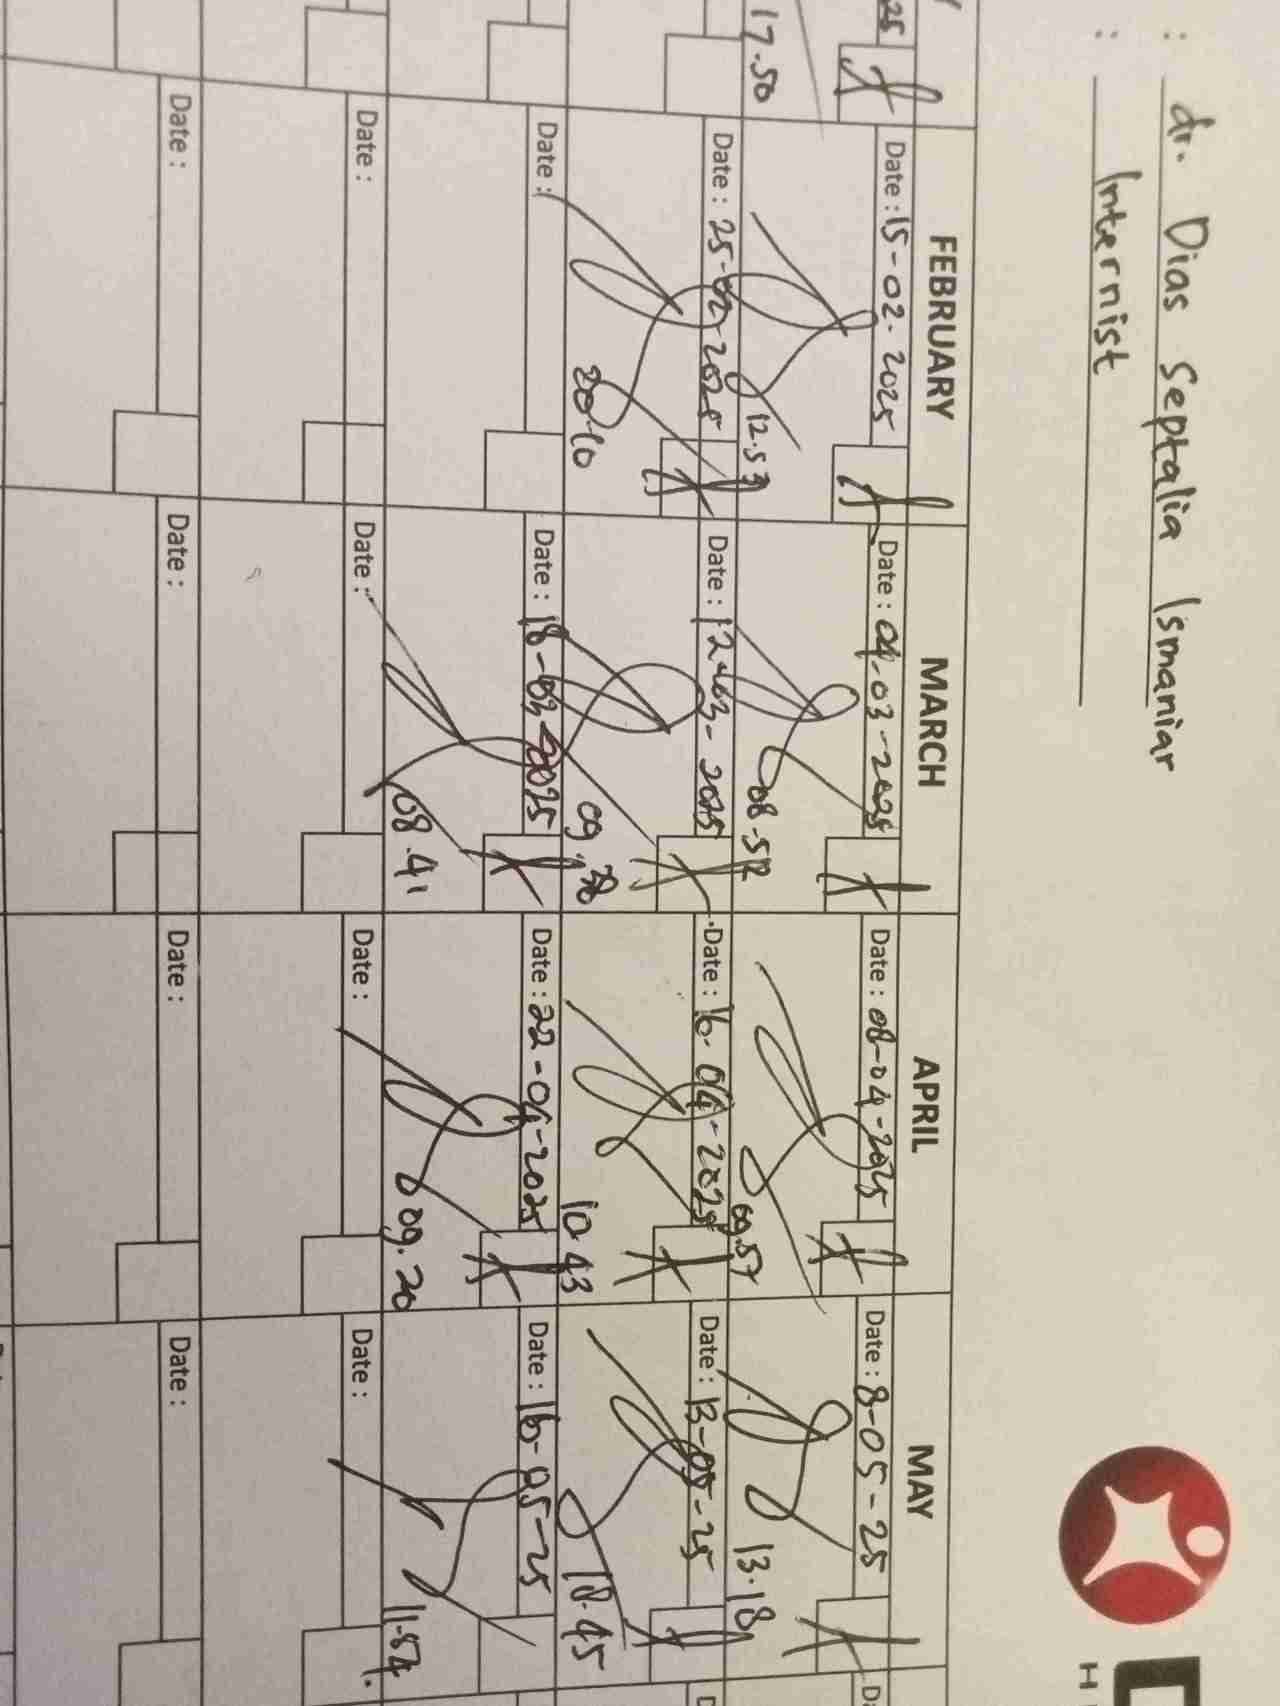 : dr. Dias Septalia Ismaniar
: Internist
FEBRUARY
MARCH
APRIL
MAY
25
Date : 15-02-2025
Date : 04-03-2025
Date : 08-04-2025
Date : 8-05-25
17.50
12.53
08.52
09.57
13.18
Date : 25-02-2025
Date : 12-03-2025
Date : 16-04-2025
Date : 13-05-25
20.10
09.38
10.43
18.45
Date :
Date : 18-03-2025
Date : 22-04-2025
Date : 16-05-25
08.41
09.20
11.54
Date :
Date :
Date :
Date :
Date :
Date :
Date :
Date :